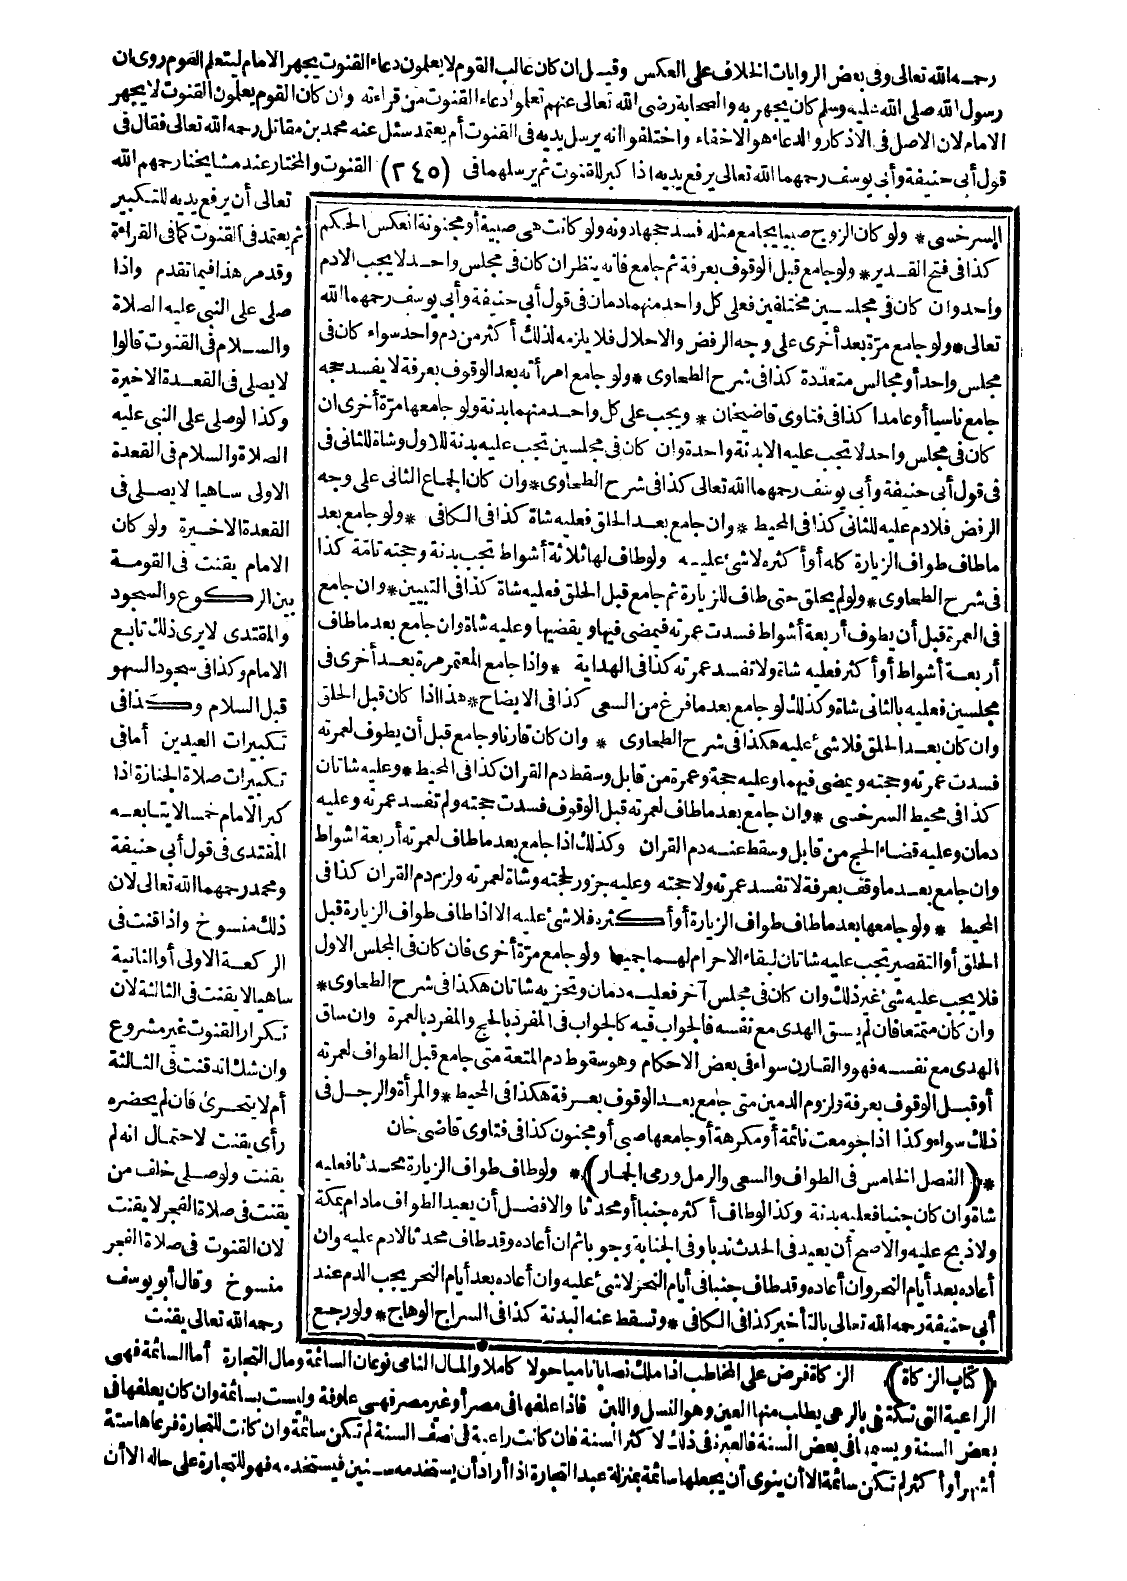 رحمه الله تعالى وفى بعض الروايات الخلاف على العكس وقيل ان كان غالب القوم لا يعلمون دعاء القنوت يجهر الامام ليتعلم القوم روى ان
رسول الله صلى الله عليه وسلم كان يجهر به والصحابة رضى الله تعالى عنهم تعلموا دعاء القنوت من قراءته وان كان القوم يعلمون القنوت لا يجهر
الامام لان الاصل فى الاذكار والدعاء هو الاخفاء واختلفوا انه يرسل يديه فى القنوت أم يعتمد سئل عنه محمد بن مقاتل رحمه الله تعالى فقال فى
قول أبى حنيفة وأبى يوسف رحمهما الله تعالى يرفع يديه اذا كبر للقنوت ثم يرسلهما فى (٢٤٥) القنوت والمختار عند مشايخنا رحمهم الله
تعالى أن يرفع يديه للتكبير
ثم يعتمد فى القنوت كما فى القراءة
وقد مر هذا فيما تقدم واذا
صلى على النبى عليه الصلاة
والسلام فى القنوت قالوا
لا يصلى فى القعدة الاخيرة
وكذا لو صلى على النبى عليه
الصلاة والسلام فى القعدة
الاولى ساهيا لا يصلى فى
القعدة الاخيرة ولو كان
الامام يقنت فى القومة
بين الركوع والسجود
والمقتدى لا يرى ذلك تابع
الامام وكذا فى سجود السهو
قبل السلام وكذا فى
تكبيرات العيدين أما فى
تكبيرات صلاة الجنازة اذا
كبر الامام خمسا لا يتابعه
المقتدى فى قول أبى حنيفة
ومحمد رحمهما الله تعالى لان
ذلك منسوخ واذا قنت فى
الركعة الاولى أو الثانية
ساهيا لا يقنت فى الثالثة لان
تكرار القنوت غير مشروع
وان شك انه قنت فى الثالثة
أم لا يتحرى فان لم يحضره
رأى يقنت لاحتمال انه لم
يقنت ولو صلى خلف من
يقنت فى صلاة الفجر لا يقنت
لان القنوت فى صلاة الفجر
منسوخ وقال أبو يوسف
رحمه الله تعالى يقنت
السرخسى * ولو كان الزوج صبيا يجامع مثله فسد حجها دونه ولو كانت هى صبية أو مجنونة انعكس الحكم
كذا فى فتح القدير * ولو جامع قبل الوقوف بعرفة ثم جامع فانه ينظر ان كان فى مجلس واحد لا يجب الا دم
واحد وان كان فى مجلسين مختلفين فعلى كل واحد منهما دمان فى قول أبى حنيفة وأبى يوسف رحمهما الله
تعالى * ولو جامع مرة بعد أخرى على وجه الرفض والاحلال فلا يلزمه لذلك أكثر من دم واحد سواء كان فى
مجلس واحد أو مجالس متعددة كذا فى شرح الطحاوى * ولو جامع امرأته بعد الوقوف بعرفة لا يفسد حجه
جامع ناسيا أو عامدا كذا فى فتاوى قاضيخان * ويجب على كل واحد منهما بدنة ولو جامعها مرة أخرى ان
كان فى مجلس واحد لا تجب عليه الا بدنة واحدة وان كان فى مجلسين تجب عليه بدنة للاول وشاة للثانى فى
فى قول أبى حنيفة وأبى يوسف رحمهما الله تعالى كذا فى شرح الطحاوى * وان كان الجماع الثانى على وجه
الرفض فلا دم عليه للثانى كذا فى المحيط * وان جامع بعد الحلق فعليه شاة كذا فى الكافى * ولو جامع بعد
ما طاف طواف الزيارة كله أو أكثره لا شئ عليه ولو طاف لها ثلاثة أشواط تجب بدنة وحجته تامة كذا
فى شرح الطحاوى * ولو لم يحلق حتى طاف للزيارة ثم جامع قبل الحلق فعليه شاة كذا فى التبيين * وان جامع
فى العمرة قبل أن يطوف أربعة أشواط فسدت عمرته فيمضى فيها ويقضيها وعليه شاة وان جامع بعد ما طاف
أربعة أشواط أو أكثر فعليه شاة ولا تفسد عمرته كذا فى الهداية * واذا جامع المعتمر مرة بعد أخرى فى
مجلسين فعليه بالثانى شاة وكذلك لو جامع بعد ما فرغ من السعى كذا فى الايضاح * هذا اذا كان قبل الحلق
وان كان بعد الحلق فلا شئ عليه هكذا فى شرح الطحاوى * وان كان قارنا وجامع قبل أن يطوف لعمرته
فسدت عمرته وحجته ويمضى فيهما وعليه حجة وعمرة من قابل وسقط دم القران كذا فى المحيط * وعليه شاتان
كذا فى محيط السرخسى * وان جامع بعد ما طاف لعمرته قبل الوقوف فسدت حجته ولم تفسد عمرته وعليه
دمان وعليه قضاء الحج من قابل وسقط عنه دم القران وكذلك اذا جامع بعد ما طاف لعمرته أربعة اشواط
وان جامع بعد ما وقف بعرفة لا تفسد عمرته ولا حجته وعليه جزور لحجته وشاة لعمرته ولزم دم القران كذا فى
المحيط * ولو جامعها بعد ما طاف طواف الزيارة أو أكثره فلا شئ عليه الا اذا طاف طواف الزيارة قبل
الحلق أو التقصير تجب عليه شاتان لبقاء الاحرام لهما جميعا ولو جامع مرة أخرى فان كان فى المجلس الاول
فلا يجب عليه شئ غير ذلك وان كان فى مجلس آخر فعليه دمان وتجزيه شاتان هكذا فى شرح الطحاوى *
وان كان متمتعا فان لم يسق الهدى مع نفسه فالجواب فيه كالجواب فى المفرد بالحج والمفرد بالعمرة وان ساق
الهدى مع نفسه فهو والقارن سواء فى بعض الاحكام وهو سقوط دم المتعة متى جامع قبل الطواف لعمرته
أو قبل الوقوف بعرفة ولزوم الدمين متى جامع بعد الوقوف بعرفة هكذا فى المحيط * والمرأة والرجل فى
ذلك سواء وكذا اذا جومعت نائمة أو مكرهة أو جامعها صبى أو مجنون كذا فى فتاوى قاضى خان
* (الفصل الخامس فى الطواف والسعى والرمل ورمى الجمار) * ولو طاف طواف الزيارة محدثا فعليه
شاة وان كان جنبا فعليه بدنة وكذا لو طاف أكثره جنبا أو محدثا والافضل أن يعيد الطواف مادام بمكة
ولا ذبح عليه والاصح أن يعيد فى الحدث ندبا وفى الجنابة وجوبا ثم ان أعاده وقد طاف محدثا لا دم عليه وان
أعاده بعد أيام النحر وان أعاده وقد طاف جنبا فى أيام النحر لا شئ عليه وان أعاده بعد أيام النحر يجب الدم عند
أبى حنيفة رحمه الله تعالى بالتأخير كذا فى الكافى * وتسقط عنه البدنة كذا فى السراج الوهاج * ولو رجع
(كتاب الزكاة) الزكاة فرض على المخاطب اذا ملك نصابا ناميا حولا كاملا والمال النامى نوعان السائمة ومال التجارة أما السائمة فهى
الراعية التى تكتفى بالرعى يطلب منها العين وهو النسل واللبن فاذا علفها فى مصر أو غير مصر فهى علوفة وليست بسائمة وان كان يعلفها فى
بعض السنة ويسيمها فى بعض السنة فالعبرة فى ذلك لاكثر السنة فان كانت راعية فى نصف السنة لم تكن سائمة وان كانت للتجارة فرعاها ستة
أشهر أو أكثر لم تكن سائمة الا أن ينوى أن يجعلها سائمة بمنزلة عبد التجارة اذا أراد أن يستخدمه سنين فيستخدمه فهو للتجارة على حاله الا أن